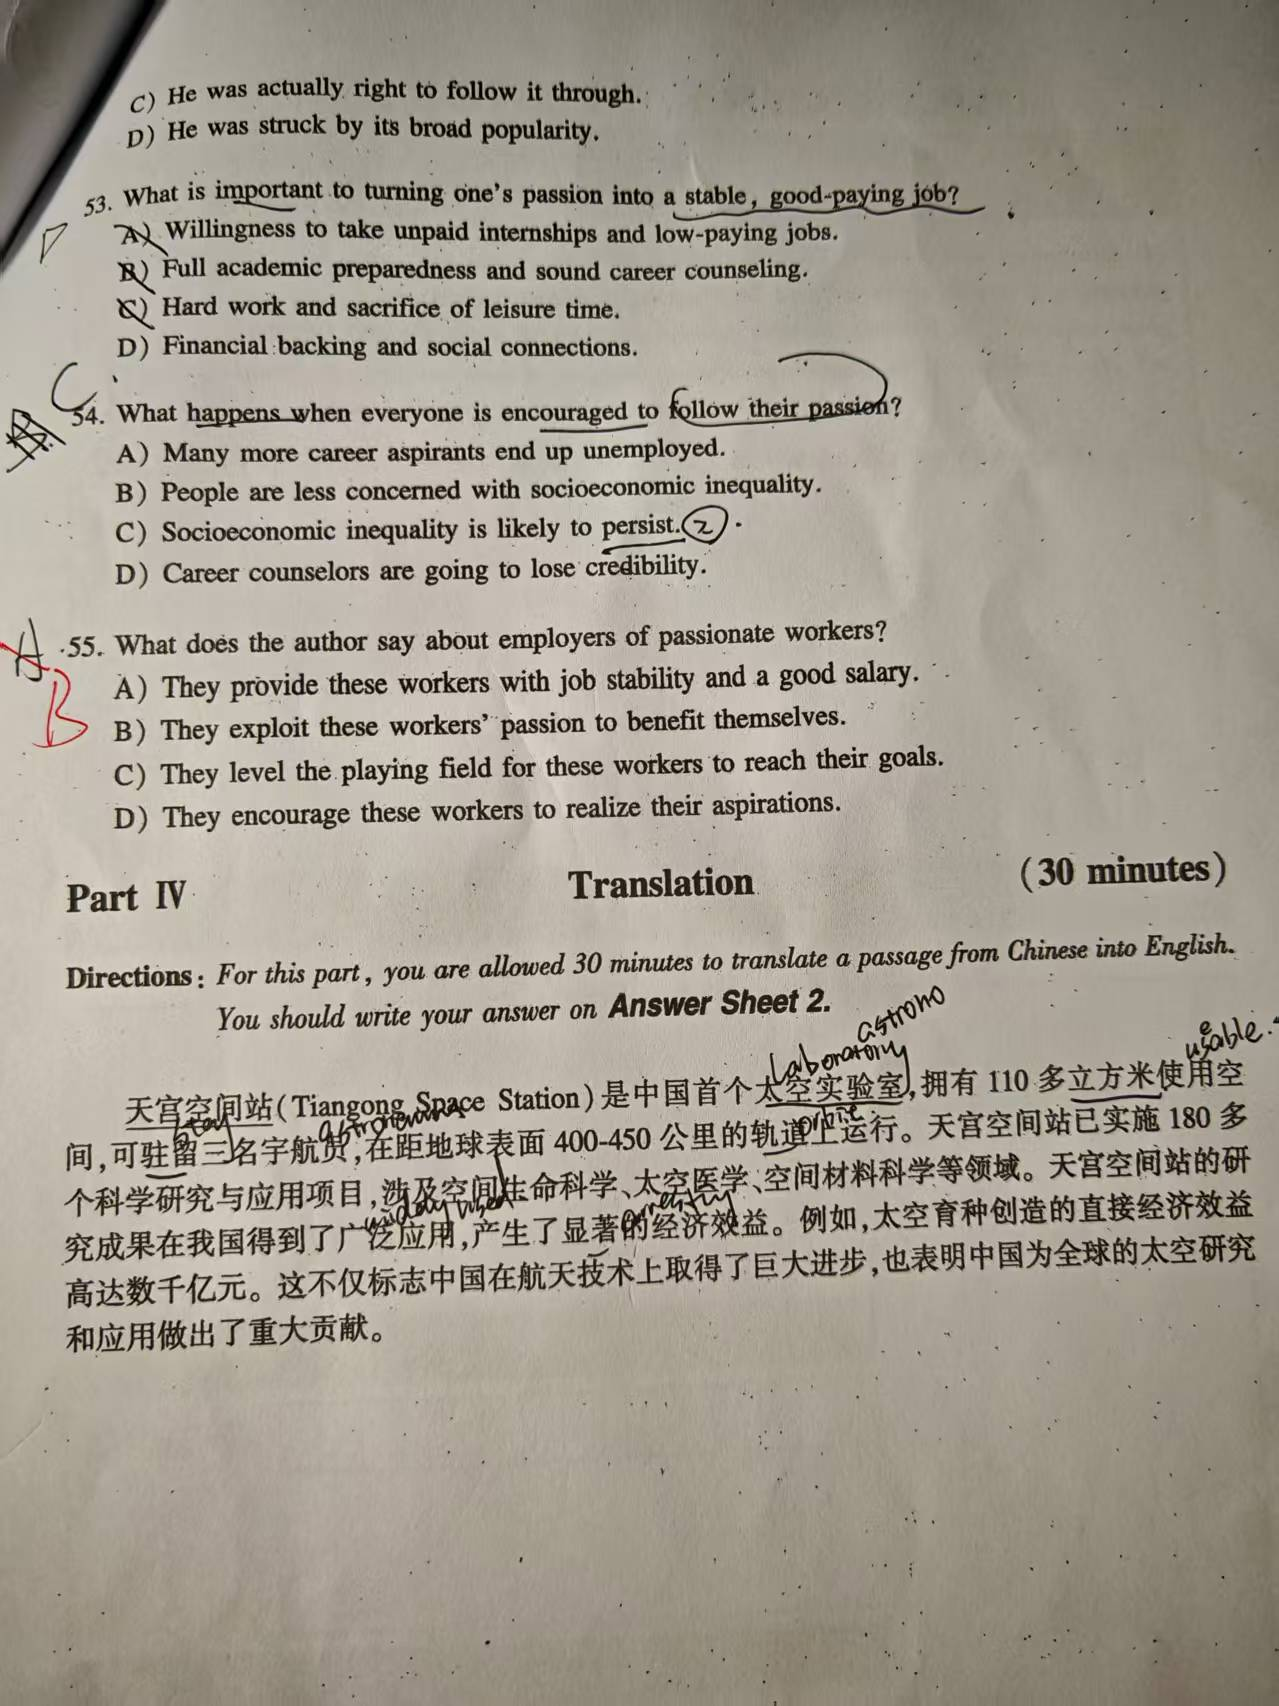 C) He was actually right to follow it through.
D) He was struck by its broad popularity.
53. What is important to turning one's passion into a stable, good-paying job?
D
A) Willingness to take unpaid internships and low-paying jobs.
B) Full academic preparedness and sound career counseling.
C) Hard work and sacrifice of leisure time.
D) Financial backing and social connections.
C
54. What happens when everyone is encouraged to follow their passion?
A) Many more career aspirants end up unemployed.
B) People are less concerned with socioeconomic inequality.
C) Socioeconomic inequality is likely to persist. 2
D) Career counselors are going to lose credibility.
A
55. What does the author say about employers of passionate workers?
B
A) They provide these workers with job stability and a good salary.
B) They exploit these workers' passion to benefit themselves.
C) They level the playing field for these workers to reach their goals.
D) They encourage these workers to realize their aspirations.
Part IV Translation (30 minutes)
Directions: For this part, you are allowed 30 minutes to translate a passage from Chinese into English.
You should write your answer on Answer Sheet 2.
astrono
laboratory usable.
天宫空间站(Tiangong Space Station)是中国首个太空实验室,拥有 110 多立方米使用空
stay
间,可驻留三名宇航员,在距地球表面 400-450 公里的轨道上运行。天宫空间站已实施 180 多
个科学研究与应用项目,涉及空间生命科学、太空医学、空间材料科学等领域。天宫空间站的研
widely used
究成果在我国得到了广泛应用,产生了显著的经济效益。例如,太空育种创造的直接经济效益
高达数千亿元。这不仅标志中国在航天技术上取得了巨大进步,也表明中国为全球的太空研究
和应用做出了重大贡献。